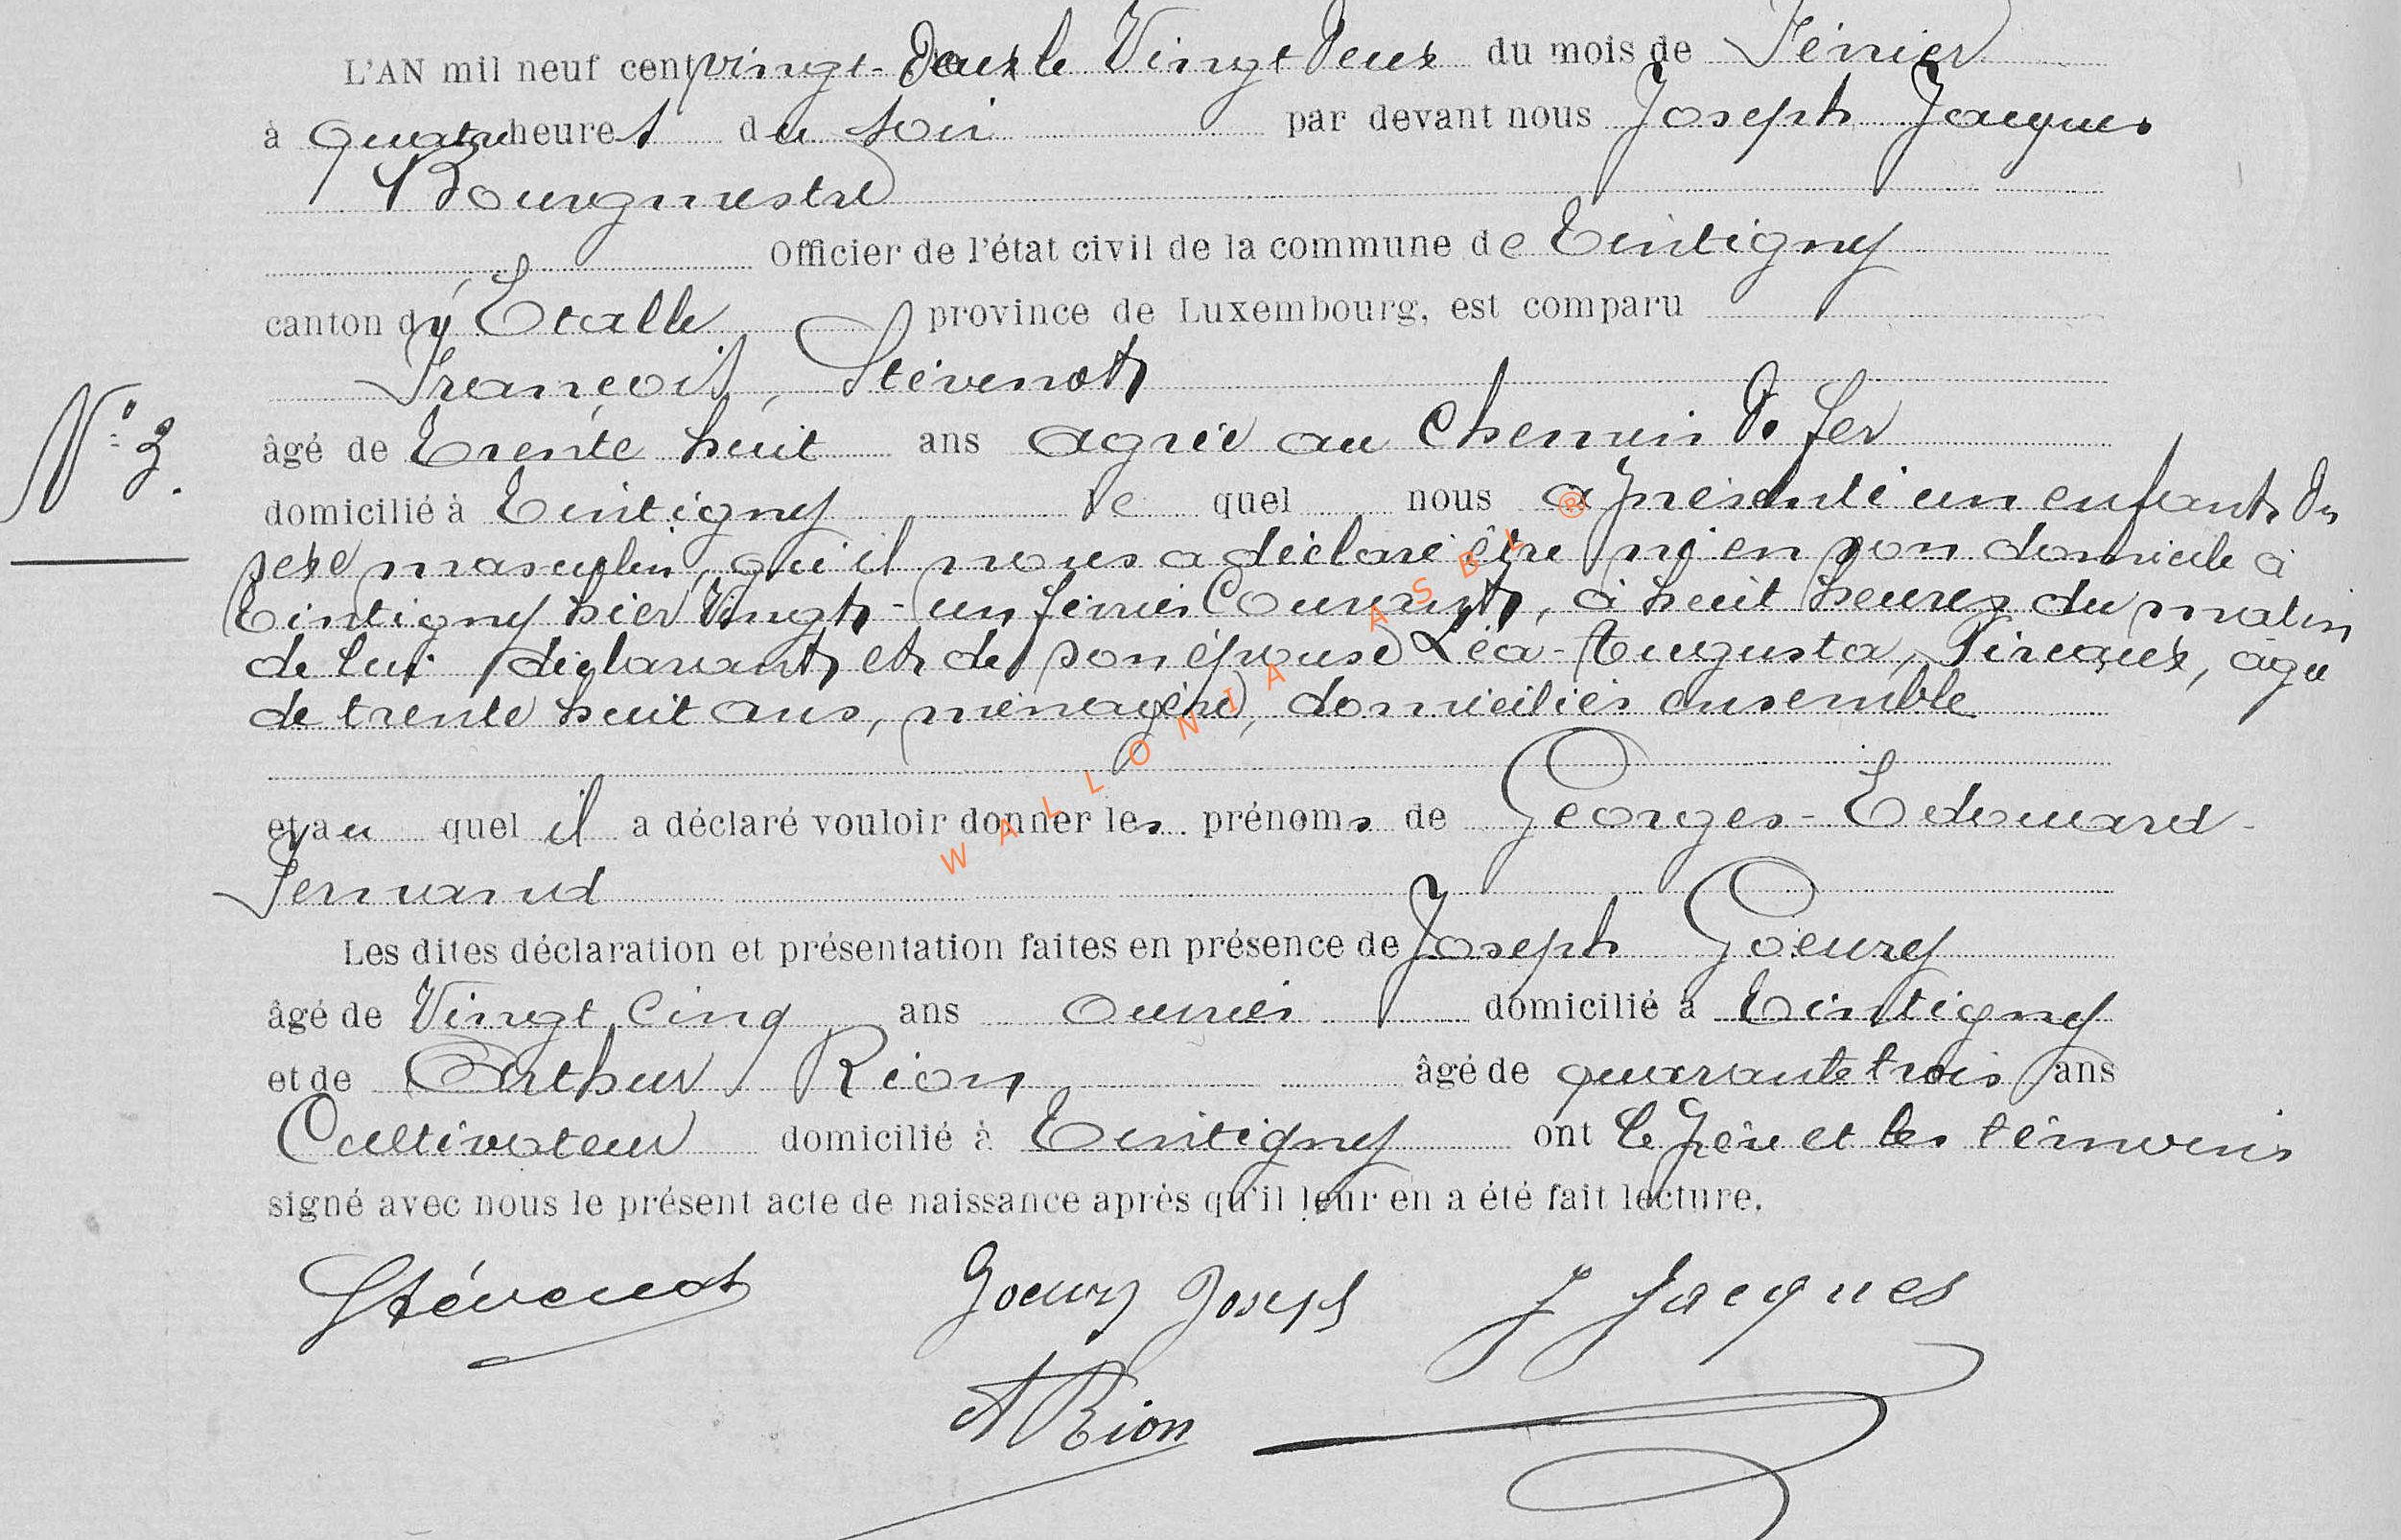 L'AN mil neuf cent vingt-Deux le Vingt Deux du mois de Février
à Quatre heures du soir par devant nous Joseph Jacques
Bourgmestre
Officier de l'état civil de la commune de Tintigny
canton d'Etalle province de Luxembourg, est comparu
François, Stévenot
N° 3.
âgé de Trente huit ans agréé au Chemin de fer
domicilié à Tintigny le quel nous a présenté un enfant du
sexe masculin, qu'il nous a déclaré être né en son domicile à
Tintigny hier Vingt-un février Courant, à huit heures du matin
de lui déclarant et de son épouse Léa-Augusta, âgée
de trente huit ans, ménagère, domiciliés ensemble
et au quel il a déclaré vouloir donner les prénoms de Georges-Edouard-
Fernand
Les dites déclaration et présentation faites en présence de Joseph Goeury
âgé de Vingt Cinq ans ouvrier domicilié à Tintigny
et de Arthur Rion âgé de quarante trois ans
Cultivateur domicilié à Tintigny ont le père et les témoins
signé avec nous le présent acte de naissance après qu'il leur en a été fait lecture.
Stévenot Goeury Joseph J Jacques
A Rion
WALLONIA ASBL ®